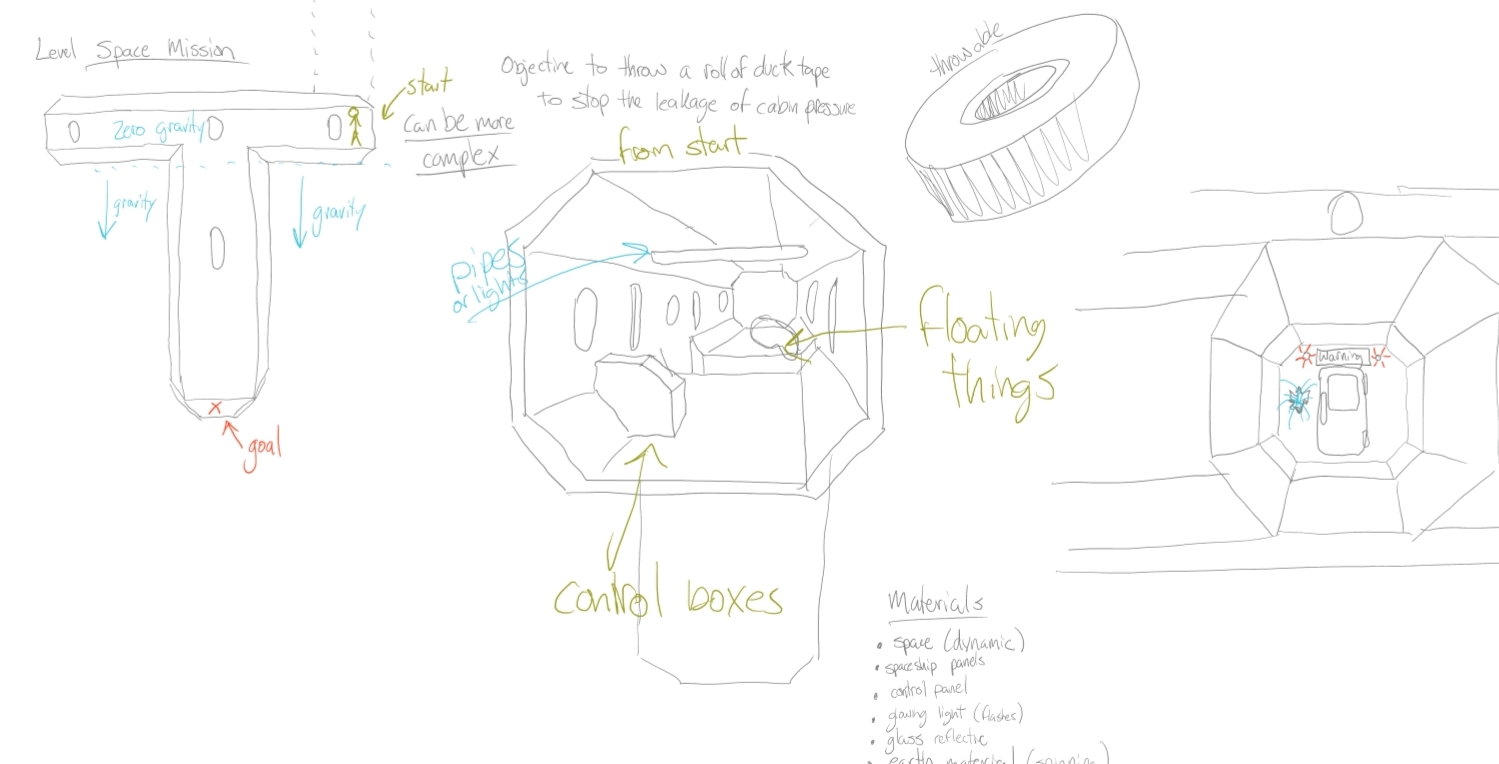 Level Space Mission
start
Zero gravity
Can be more
complex
gravity
gravity
goal
Objective to throw a roll of duck tape
to stop the leakage of cabin pressure
from start
throwable
pipes
or lights
Floating
things
control boxes
Warning
Materials
• space (dynamic)
• spaceship panels
• control panel
• glowing light (flashes)
• glass reflective
• earth material (spinning)